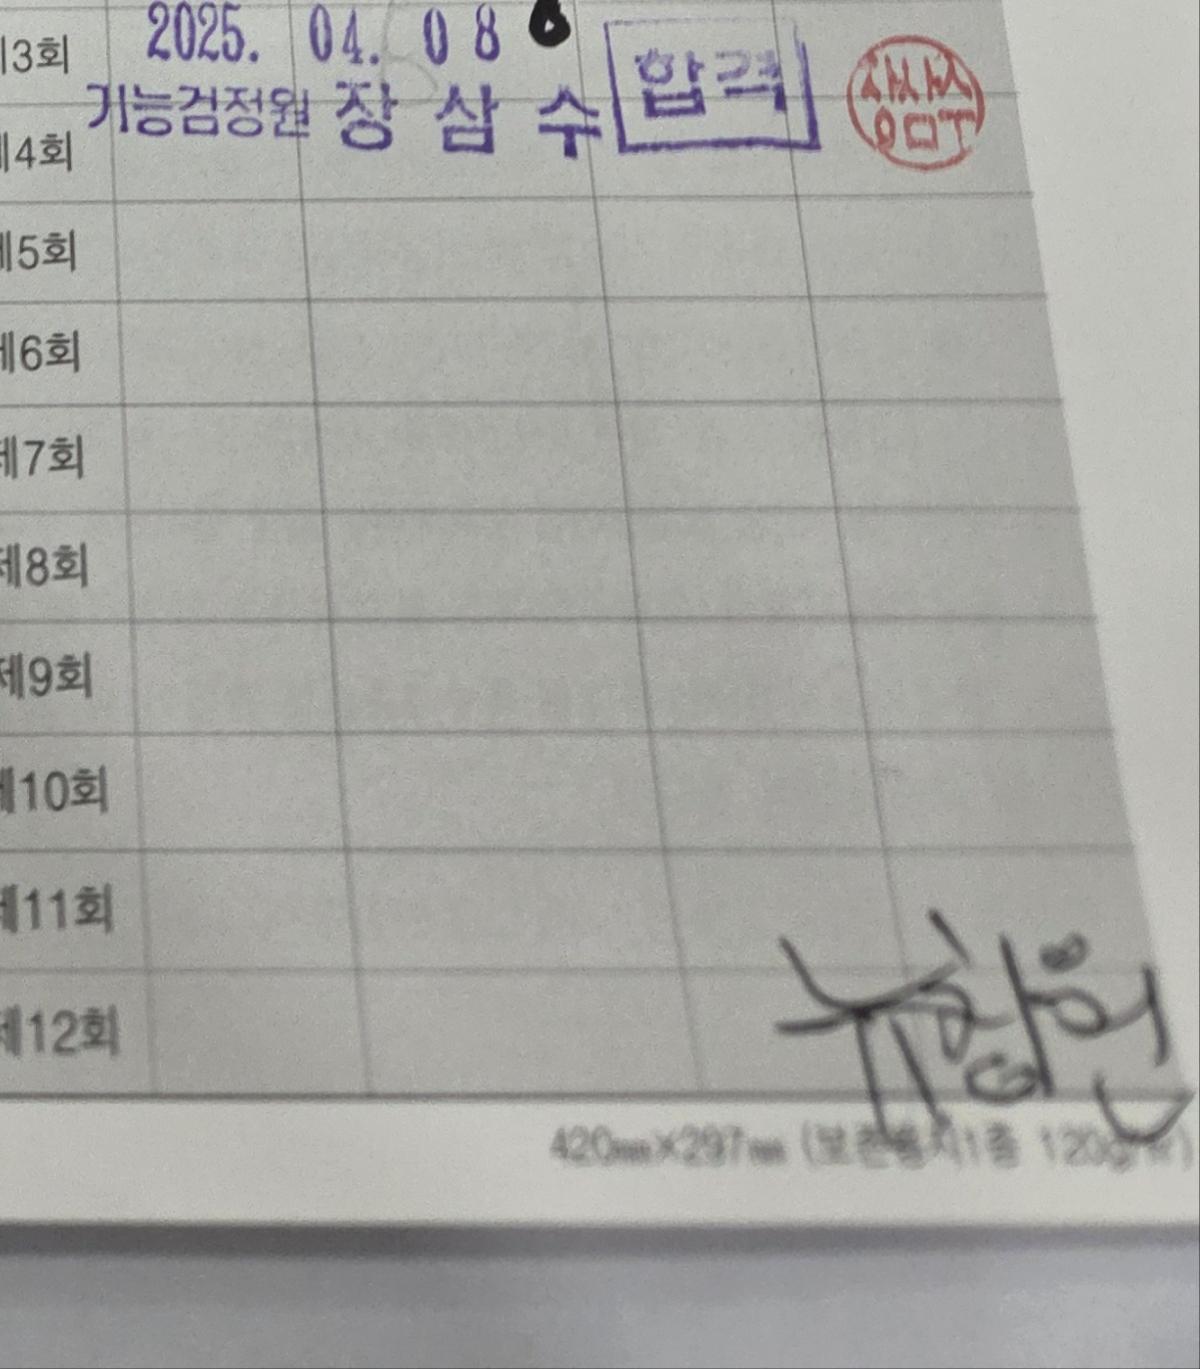 제3회 2025. 04. 08
기능검정원 장 삼 수 합격
제4회
제5회
제6회
제7회
제8회
제9회
제10회
제11회
제12회
420㎜×297㎜ (보존용지1종 120g/㎡)